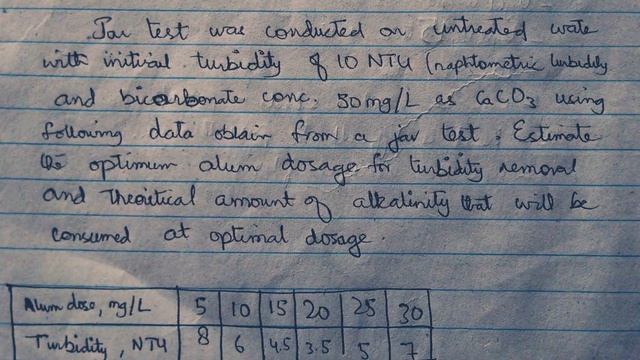 Jar test was conducted on untreated wate
with initival turbidity of 10 NTU (naphtometric turbidity
and bicarbonate conc. 50 mg/L as CaCO3 using
following data obtain from a jar test. Estimate
the optimum alum dosage for turbidity removal
and Theoritical amount of alkalinity that will be
consumed at optimal dosage.
Alum dose, mg/L 5 10 15 20 25 30
Turbidity, NTU 8 6 4.5 3.5 5 7